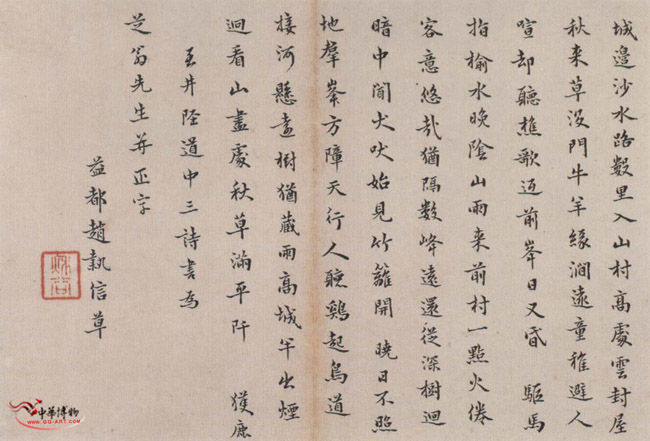 城邊沙水路數里入山村高處雲封屋
秋来草沒門牛羊緣澗遠童稚避人
喧却聽樵歌近前峯日又昏 驅馬
指榆水晚陰山雨来前村一點火倦
客意悠哉猶隔數峰遠還從深樹迴
暗中聞犬吠始見竹籬開 曉日不照
地羣峯方障天行人聽鷄起鳥道
接河懸樹猶蔵雨高城半出煙
迴看山盡處秋草滿平阡 獲鹿
至井陘道中三詩書為
芝翁先生并正字
益都趙執信草
中華博物
www.gg-art.com